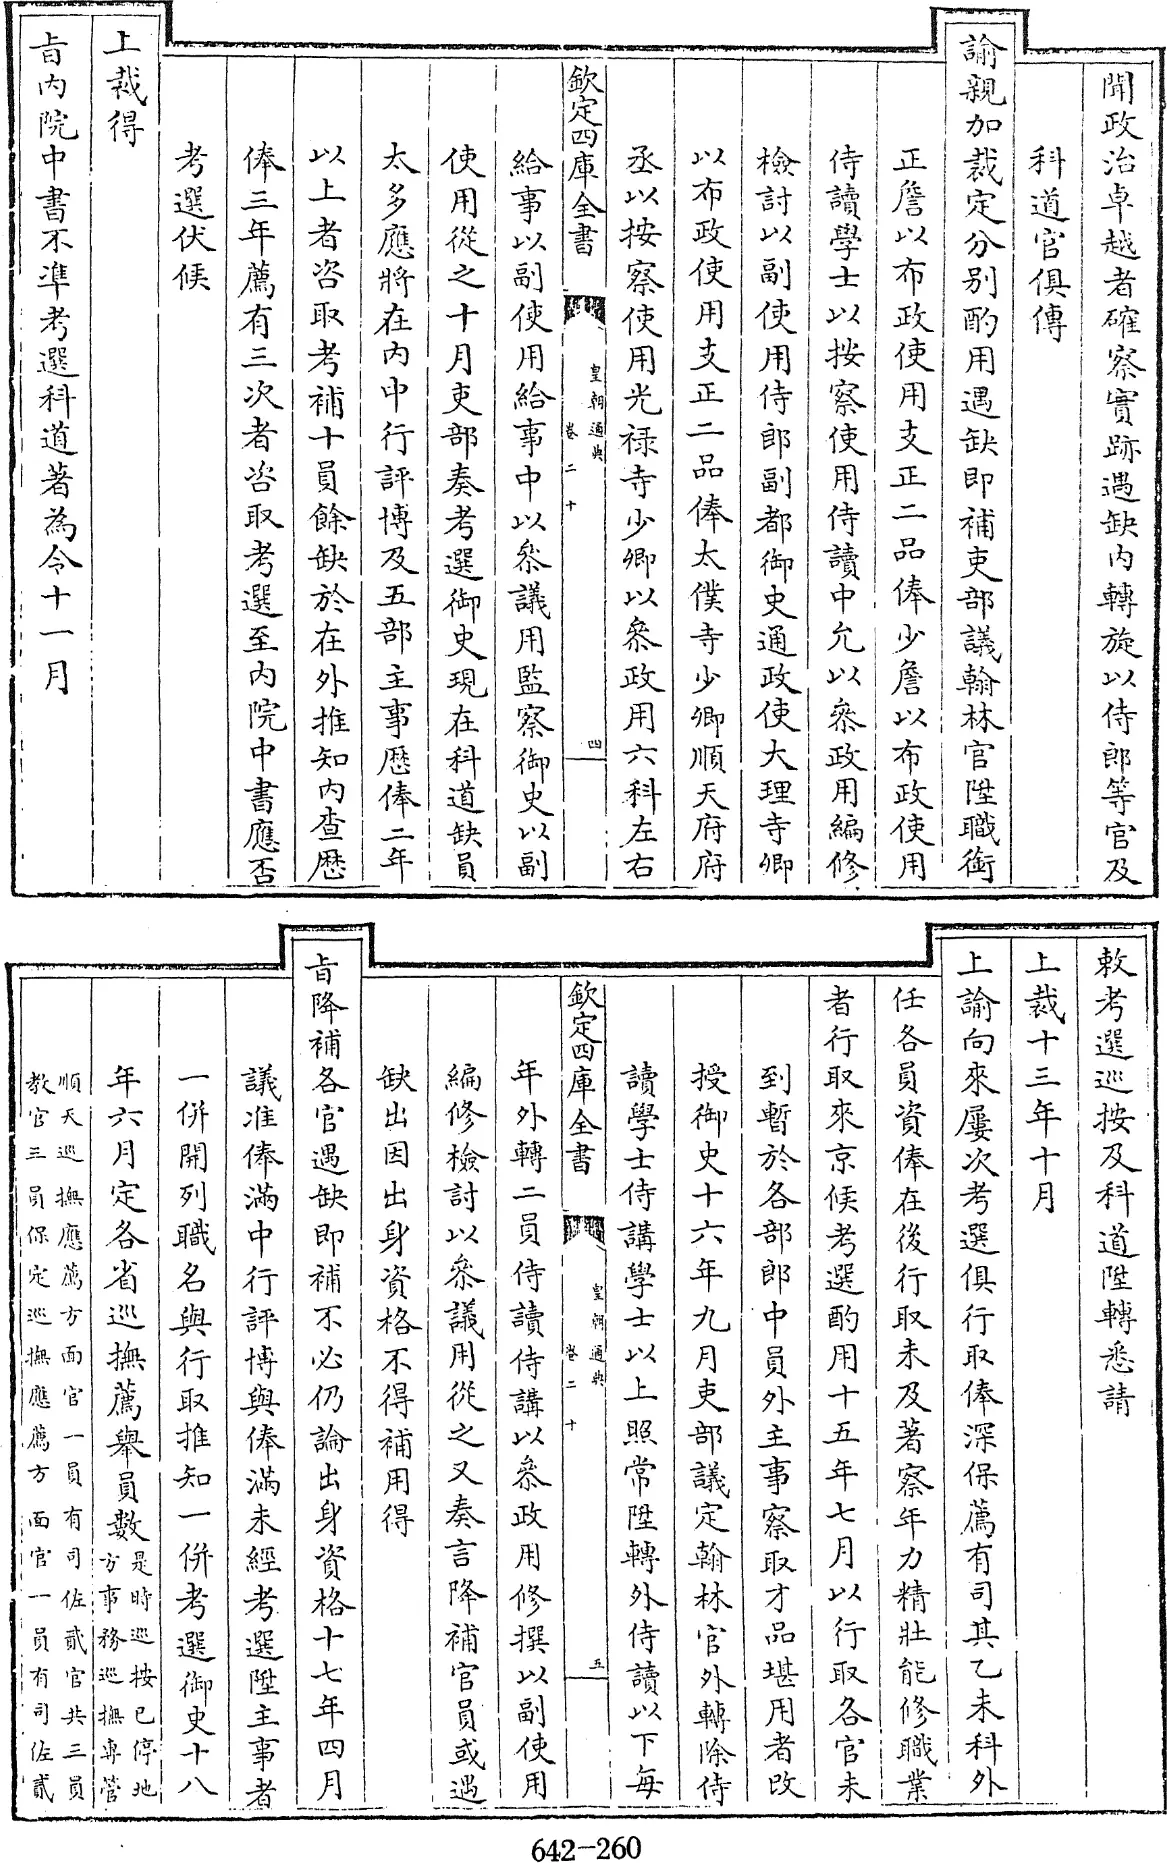 聞政治卓越者確察實跡遇缺内轉旋以侍郎等官及
科道官俱傳
諭親加裁定分别酌用遇缺即補吏部議翰林官陞職銜
正詹以布政使用支正二品俸少詹以布政使用
侍讀學士以按察使用侍讀中允以叅政用編修
檢討以副使用侍郎副都御史通政使大理寺卿
以布政使用支正二品俸太僕寺少卿順天府府
丞以按察使用光禄寺少卿以叅政用六科左右
欽定四庫全書
皇朝通典
卷二十
四
給事以副使用給事中以叅議用監察御史以副
使用從之十月吏部奏考選御史現在科道缺員
太多應將在内中行評博及五部主事歷俸二年
以上者咨取考補十員餘缺於在外推知内查歷
俸三年薦有三次者咨取考選至内院中書應否
考選伏候
上裁得
旨内院中書不准考選科道著為令十一月
敕考選巡按及科道陞轉悉請
上裁十三年十月
上諭向來屢次考選俱行取俸深保薦有司其乙未科外
任各員資俸在後行取未及著察年力精壯能修職業
者行取來京候考選酌用十五年七月以行取各官未
到暫於各部郎中員外主事察取才品堪用者改
授御史十六年九月吏部議定翰林官外轉除侍
讀學士侍講學士以上照常陞轉外侍讀以下每
欽定四庫全書
皇朝通典
卷二十
五
年外轉二員侍讀侍講以叅政用修撰以副使用
編修檢討以叅議用從之又奏言降補官員或遇
缺出因出身資格不得補用得
旨降補各官遇缺即補不必仍論出身資格十七年四月
議准俸滿中行評博與俸滿未經考選陞主事者
一併開列職名與行取推知一併考選御史十八
年六月定各省巡撫薦舉員數是時巡按已停地
方事務巡撫專管
順天巡撫應薦方面官一員有司佐貳官共三員
教官三員保定巡撫應薦方面官一員有司佐貳
642-260